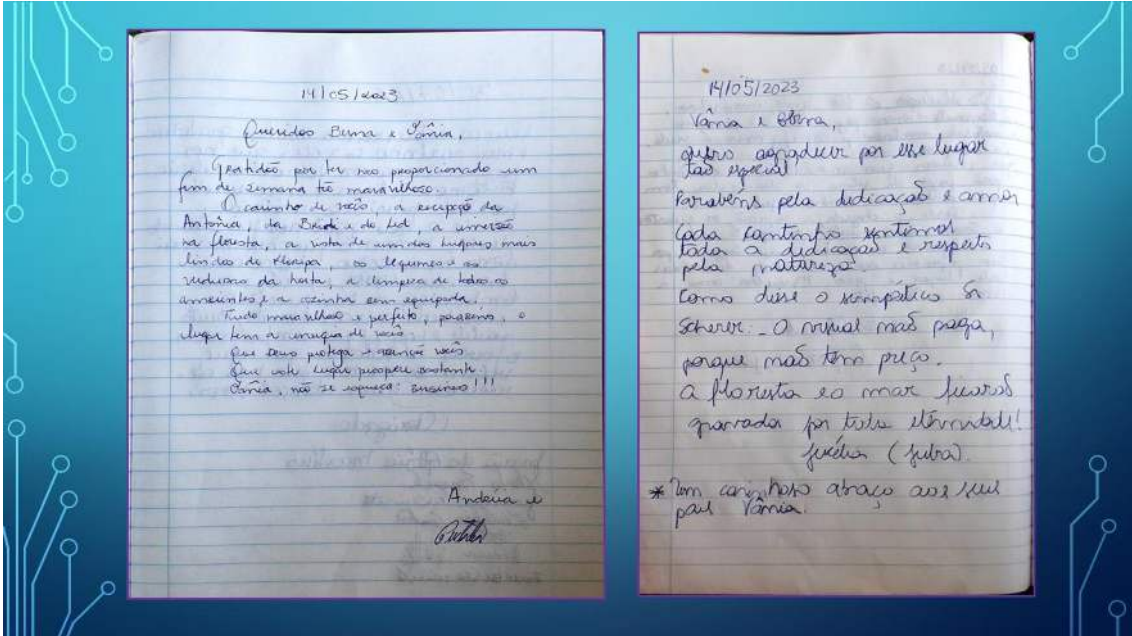 14/05/2023
Queridos Berna e Vânia,
Gratidão por ter nos proporcionado um
fim de semana tão maravilhoso.
O carinho de vocês, a recepção da
Antônia, da Bridi e do Led, a imersão
na floresta, a vista de um dos lugares mais
lindos de Floripa, os legumes e as
verduras da horta, a limpeza de todos os
ambientes e a cozinha bem equipada.
Tudo maravilhoso e perfeito, parabéns, o
lugar tem a energia de vocês
Que Deus proteja e abençoe vocês
Que este lugar prospere bastante
Vânia, não se esqueça:
Andréia e
14/05/2023
Vânia e Berna,
quero agradecer por esse lugar
tão especial!
Parabéns pela dedicação e amor
Cada cantinho sentimos
toda a dedicação e respeito
pela natureza.
Como disse o simpático Sr
Scherer: - O visual não paga,
porque não tem preço.
A floresta e o mar ficarão
gravados por toda eternidade!
(Juba).
* Um carinhoso abraço aos seus
pais Vânia.